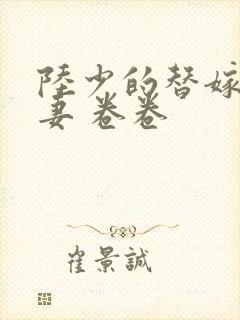 陸少的替嫁
妻 卷卷
崔景誠